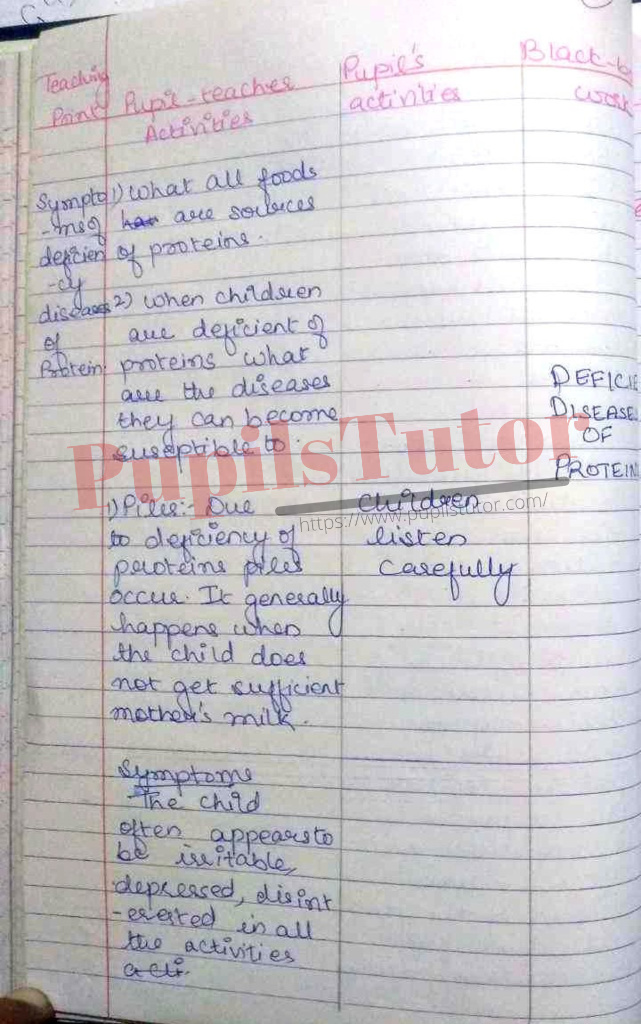 Teaching
Point
Pupil-teacher
Activities
Pupil's
activities
Black-b
work
Sympto
-ms of
deficien
-cy
diseases
of
Protein
1) What all foods
are sources
of proteins.
2) When children
are deficient of
proteins what
are the diseases
they can become
susceptible to.
1) Piles:- Due
to deficiency of
proteins piles
occur. It generally
happens when
the child does
not get sufficient
mother's milk.
Symptoms
- The child
often appears to
be irritable,
depressed, disint
-erested in all
the activities
acti.
children
listen
carefully
DEFICIE
DISEASE
OF
PROTEIN
PupilsTutor
https://www.pupilstutor.com/